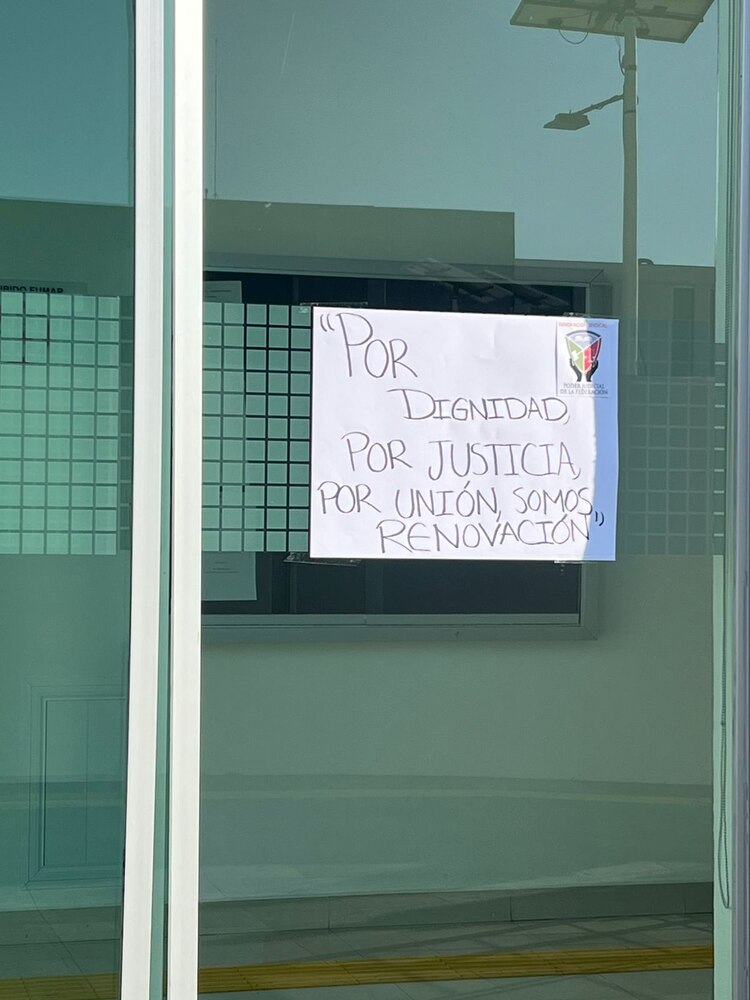 "POR
DIGNIDAD,
POR JUSTICIA,
POR UNIÓN, SOMOS
RENOVACIÓN"
RENOVACIÓN SINDICAL
PODER JUDICIAL
DE LA FEDERACIÓN
FUMAR